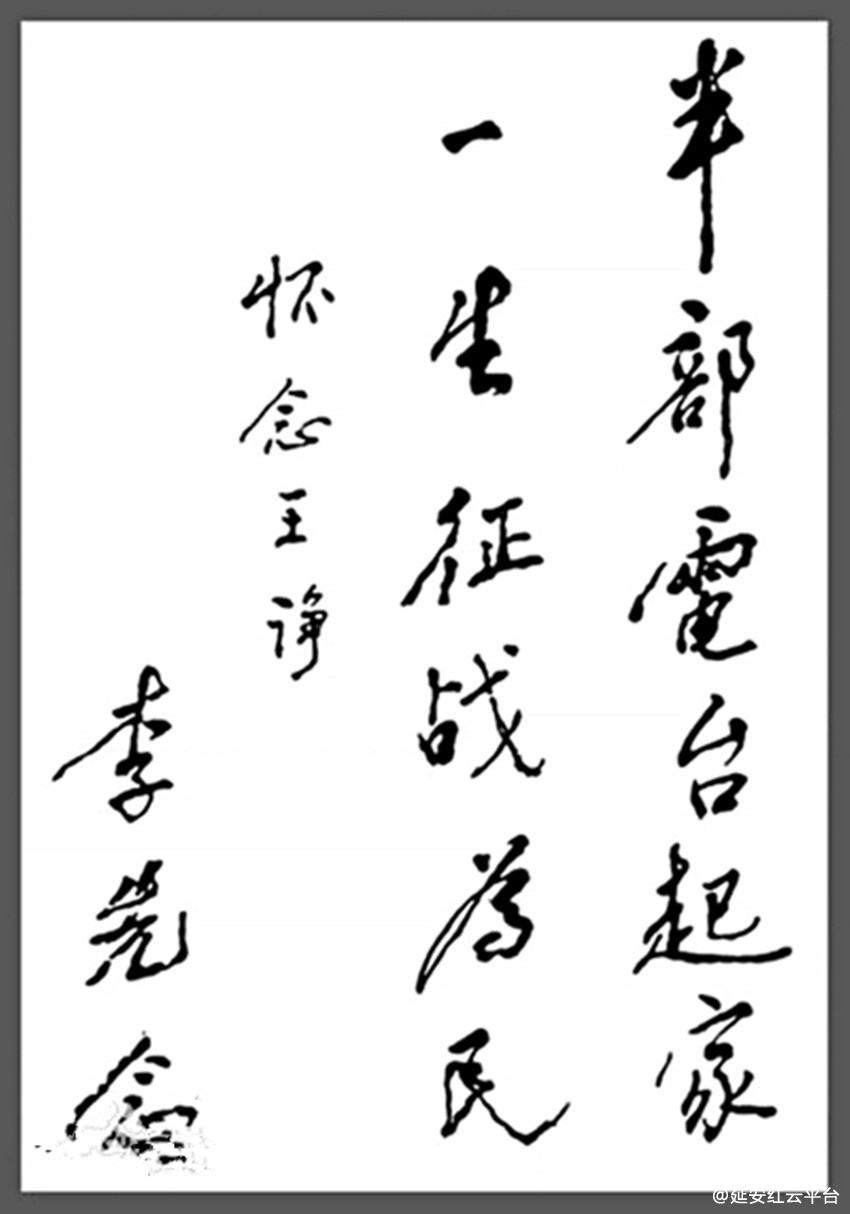 半部電台起家
一生征战為民
怀念王诤
李先念
@延安红云平台